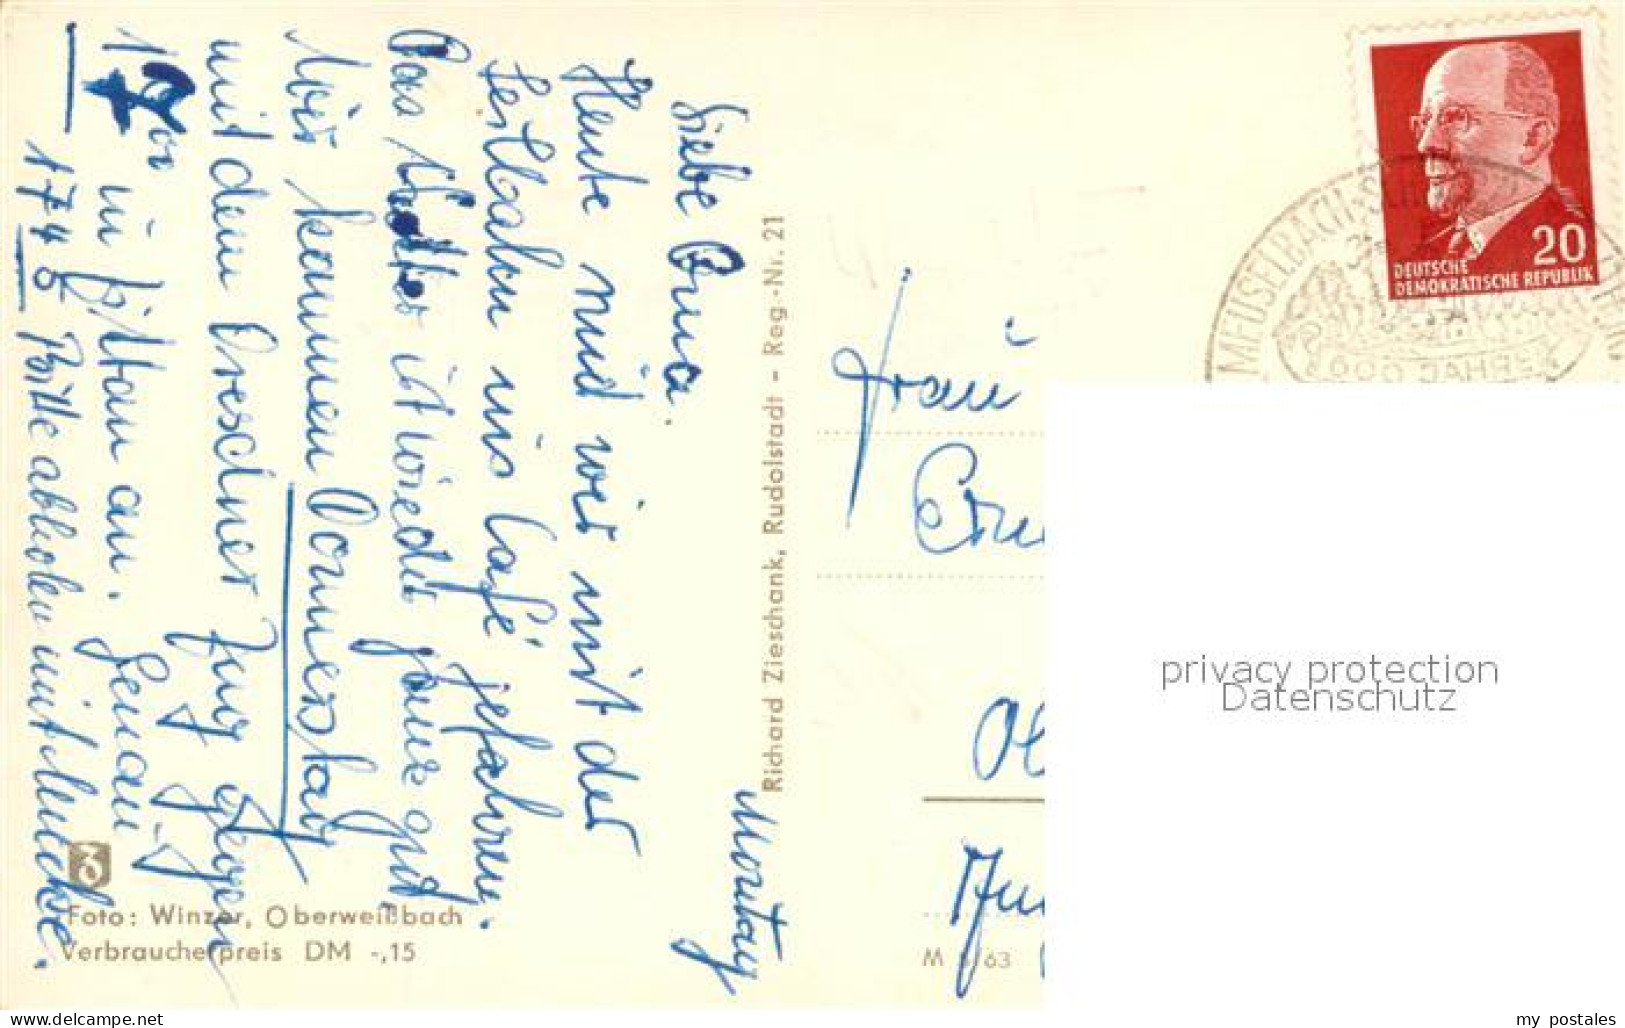 Montag
Liebe Erna.
Heute sind wir mit der
Seilbahn ins Café gefahren.
Das Wetter ist wieder ganz gut
Wir kommen Donnerstag
mit dem Dresdner Zug gegen
in Zittau an. Genau
17 45 Bitte abholen mit
Richard Zieschank, Rudolstadt - Reg.-Nr. 21
Foto: Winzer, Oberweißbach
Verbraucherpreis DM -,15
20
DEUTSCHE
DEMOKRATISCHE REPUBLIK
MEUSELBACH-
1000 JAHRE
Frau
privacy protection
Datenschutz
www.delcampe.net
my_postales